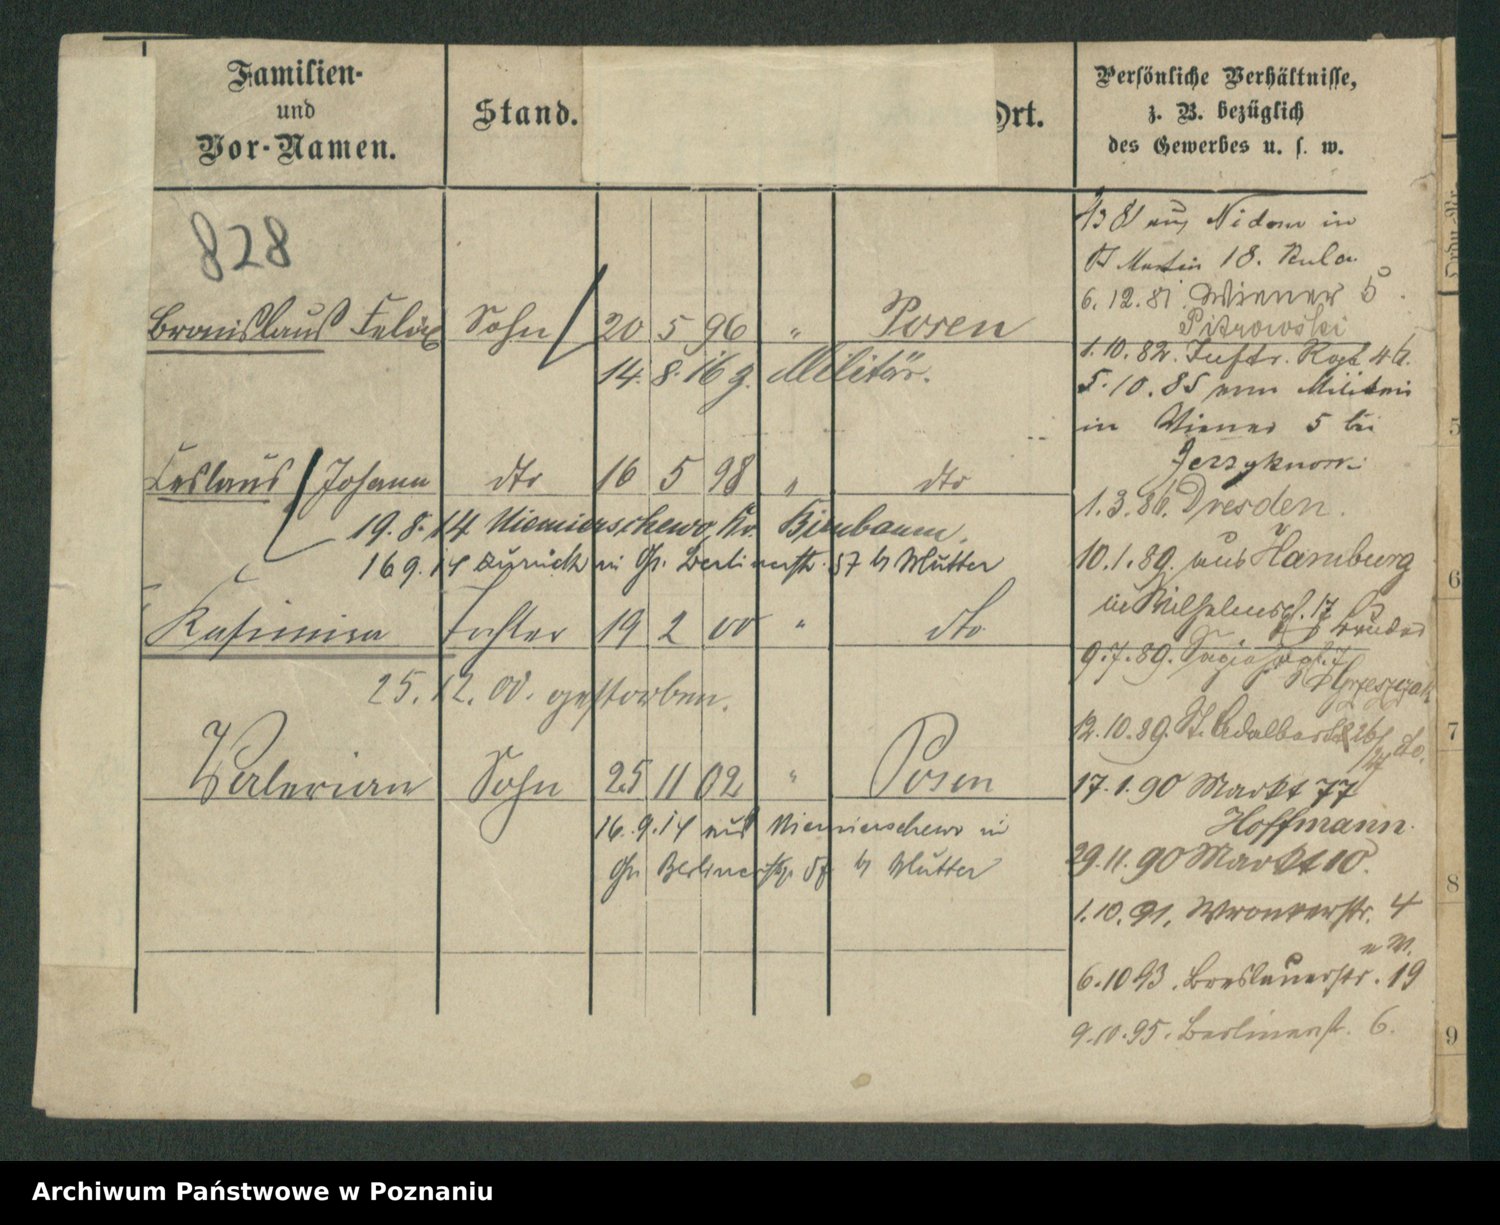 Familien-
und
Vor-Namen.
Stand.
Ort.
Persönliche Verhältnisse,
z. B. bezüglich
des Gewerbes u. s. w.
828
Bronislaus Felix Sohn 20 5 96 " Posen
14. 8. 16 g. Militär.
Ceslaus Johann dto 16 5 98 " dto
19. 8. 14 Niemierschewo, Kr. Birnbaum.
16 9. 14 zurück in Gr. Berlinerstr. 57 b Mutter
Kasimira Tochter 19 2 00 " dto
25. 12. 00. gestorben.
Valerian Sohn 25 11 02 " Posen
16. 9. 14 aus Niemierschewo in
Gr. Berlinerstr. 57 b Mutter
aus in
St Martin 18.
6. 12. 81. Wiener 5.
Pitrowski
1. 10. 82. Inftr. Regt 46.
5. 10. 85 vom Militair
in Wiener 5 bei
1. 3. 86. Dresden.
10. 1. 89. aus Hamburg
in Wilhelmspl. 17
Bruder
9. 7. 89.
12. 10. 89. St. Adalbert
17. 1. 90 Markt 77
Hoffmann.
29. 11. 90 Markt 10.
1. 10. 91. Wronkerstr. 4
6. 10 93. Breslauerstr. 19
9. 10. 95. Berlinerst. 6.
5
6
7
8
9
Archiwum Państwowe w Poznaniu